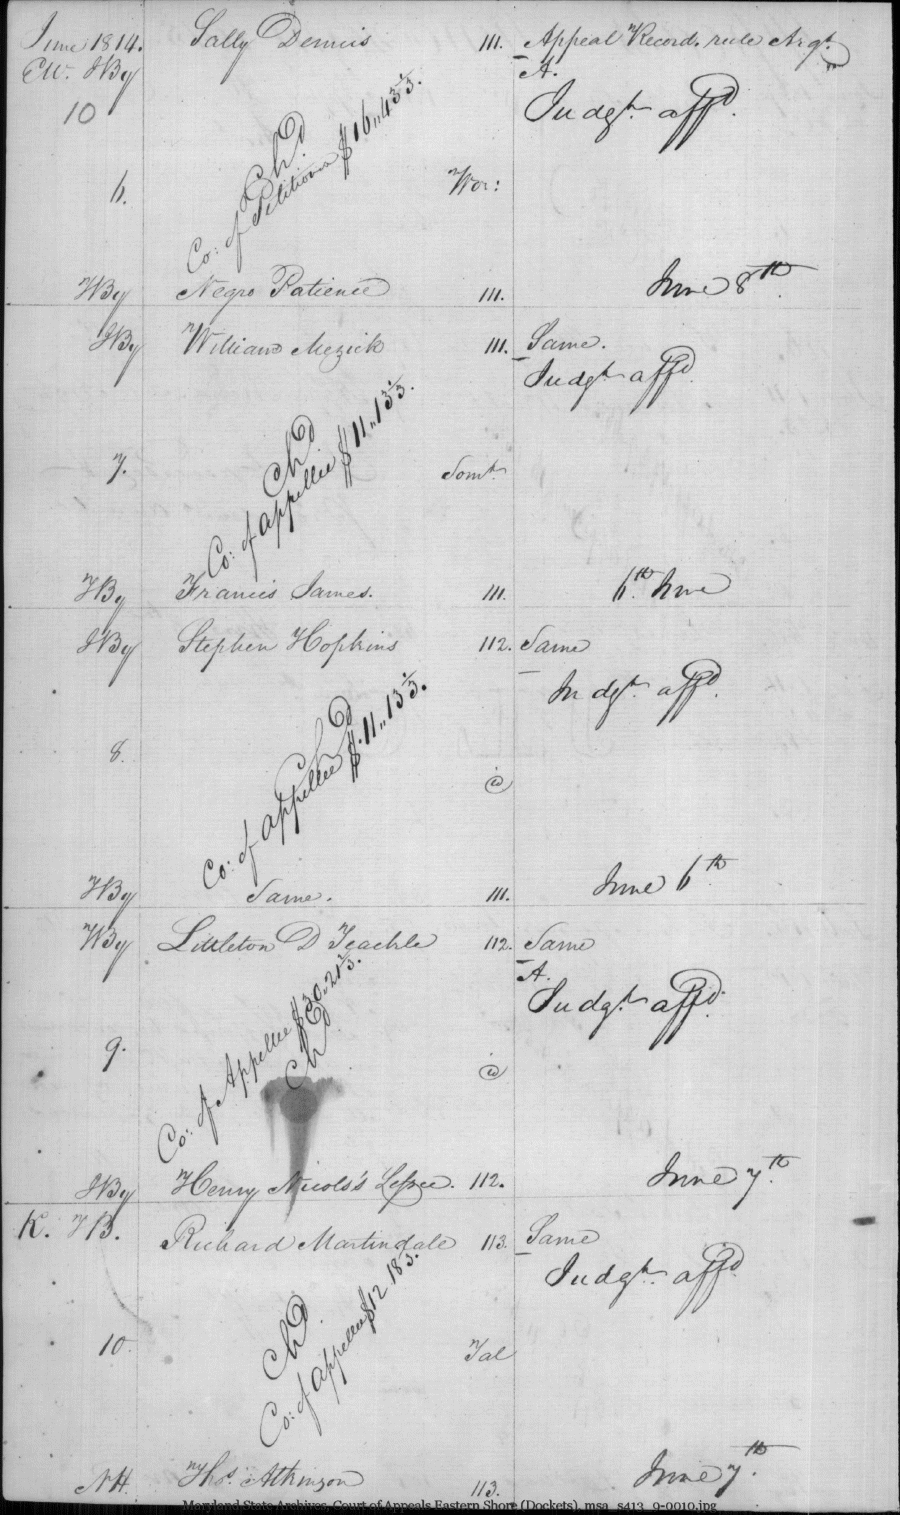 June 1814. Sally Dennis 111. Appeal Record. rule Argt.
EW. JBy A.
10 Judgt. affd.
Chd
Co: of Petitioner $16,,43⅓.
6. Wor:
WBy Negro Patience 111. June 8th
JBy William Mezick 111. Same.
Judgt affd.
Chd
Co: of appellee $11,,13⅓.
7. Somt.
JBy Francis James. 111. 6th June
JBy Stephen Hopkins 112. Same
Judgt. affd.
Chd
Co: of appellee $11,,13⅓.
8.
JBy Same. 111. June 6th
WBy Littleton D Teackle 112. Same
A.
Judgt. affd.
Co: of Appellee $30,,21⅔.
Chd
9.
JBy Henry Nicols's Lessee. 112. June 7th
K. JB. Richard Martindale 113. Same
Judgt. affd
Chd
Co: of appellee $12 18⅓.
10. Tal
NH. Thos. Atkinson 113. June 7th
Maryland State Archives, Court of Appeals Eastern Shore (Dockets), msa_s413_9-0010.jpg